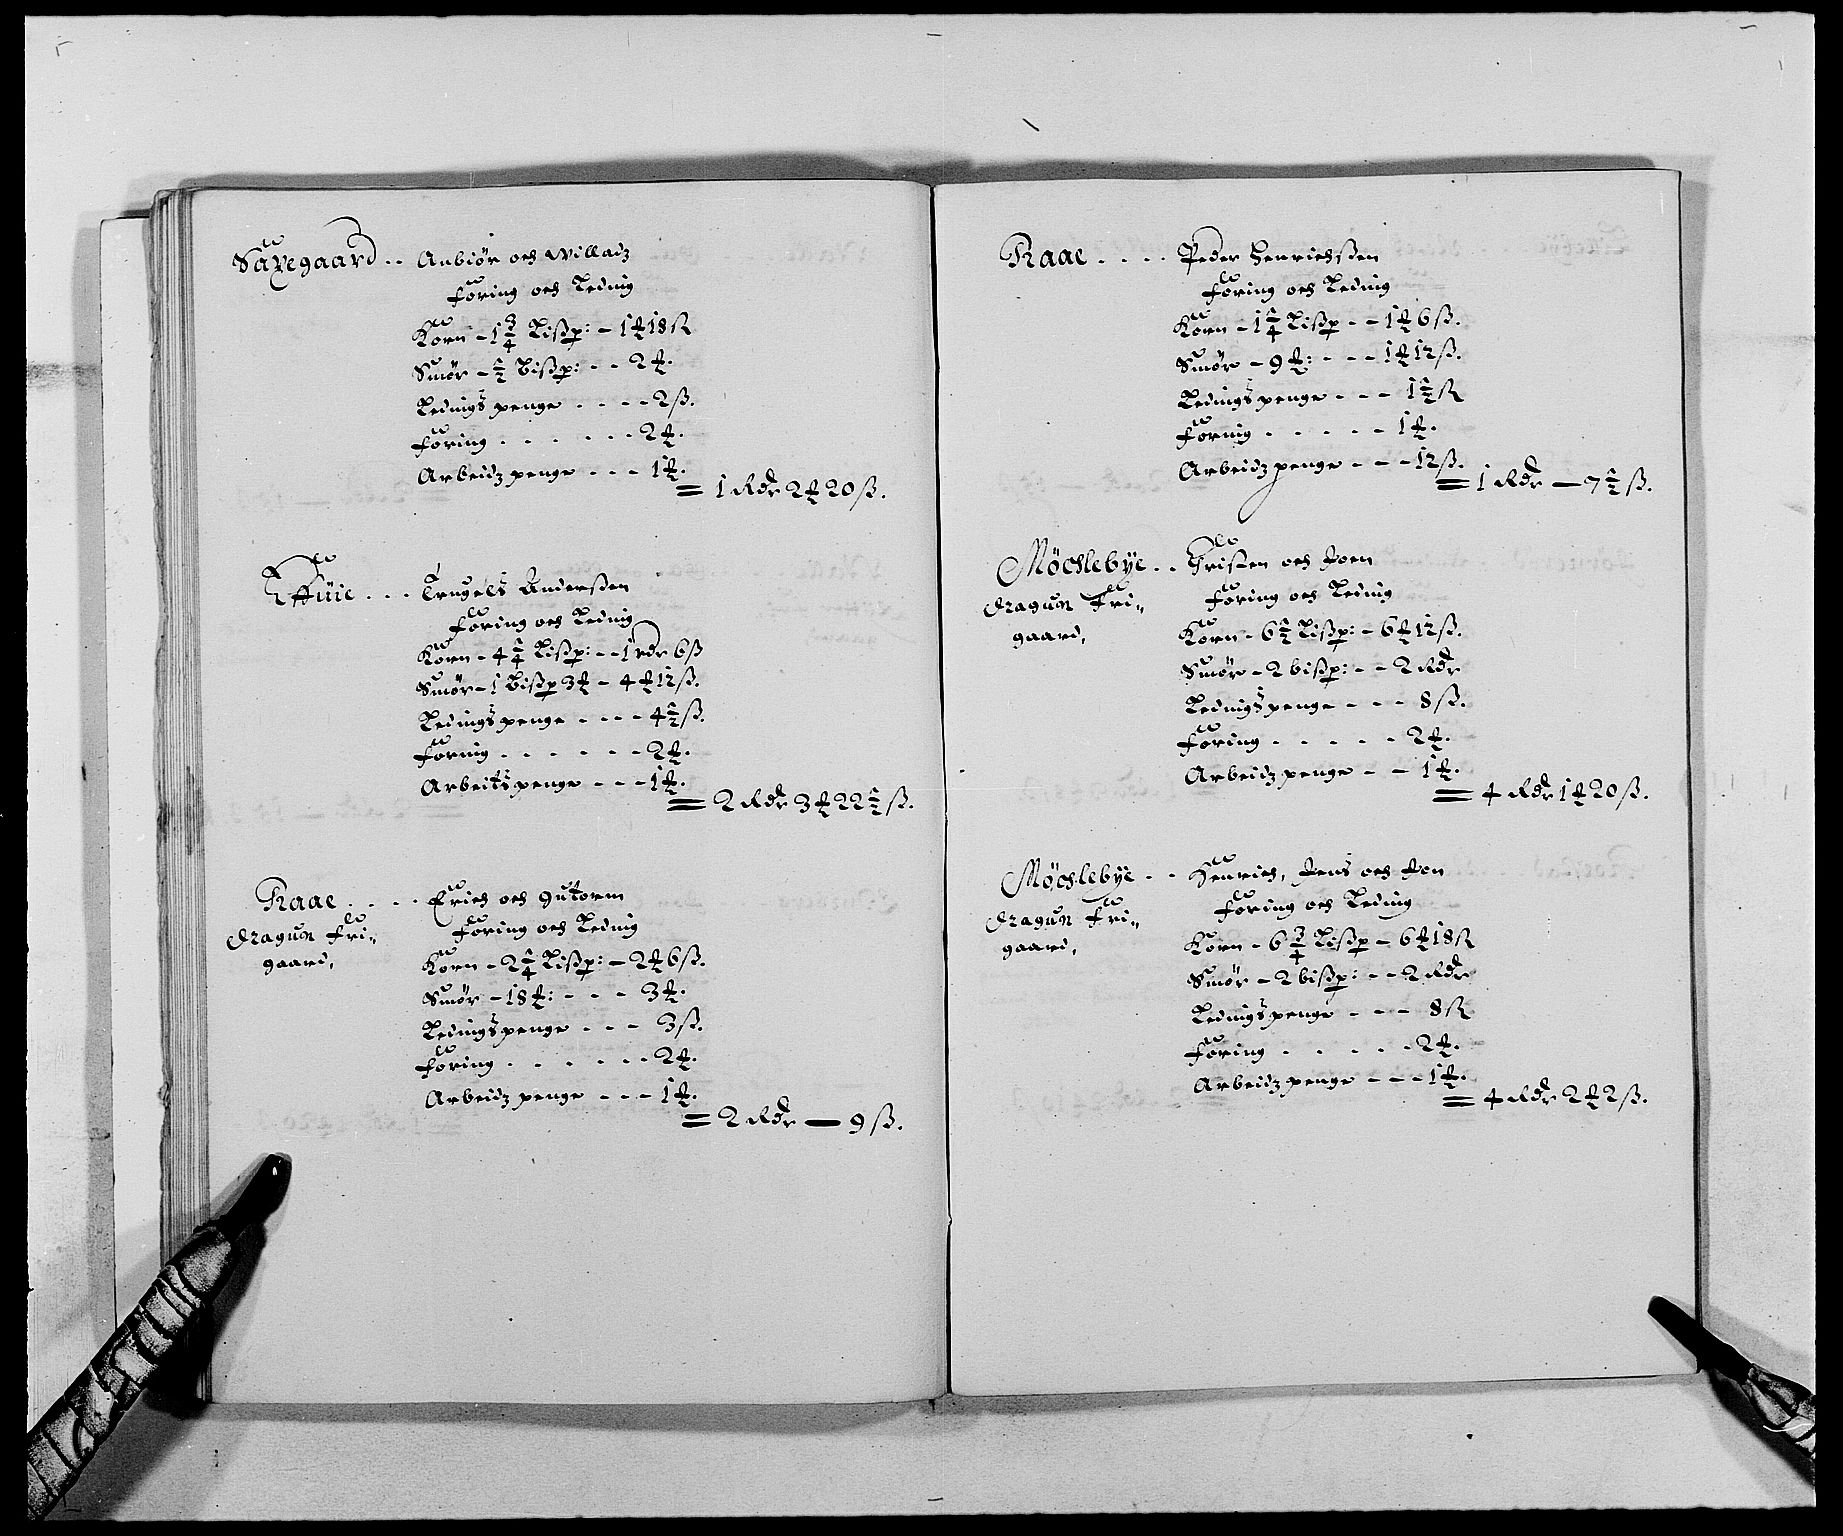 Saxegaard .. Anbiör och Willadz
Foring och Leding
Korn - 1 3/4 Lißp: - 1 ₶ 18 ß
Smör - 1/2 Bißp: - - 2 ₶.
Ledings penge - - - - 2 ß.
Foring . - . - . - 2 ₶.
Arbeidz penge - - - 1 ₶.
= 1 Rdr 2 ₶ 20 ß.
Trugels Anderßen
Foring och Leding
Korn - 4 1/4 Lißp: - - 1 rdr 6 ß
Smör - 1 Bißp 3 ₶ - 4 ₶ 12 ß.
Ledings penge - - - - 4 1/2 ß.
Foring . - . - . - 2 ₶.
Arbeitspenge - - - 1 ₶.
= 2 Rdr 3 ₶ 22 1/2 ß.
Raae . . . . Erich och Gutorm
dragun Fri=
gaard,
Foring och Leding
Korn - 2 1/4 Lißp: - 2 ₶ 6 ß.
Smör - 18 ₶: - - - 3 ₶.
Ledings penge - - - 3 ß.
Foring . - . - . - 2 ₶.
Arbeidz penge - - - 1 ₶.
= 2 Rdr — 9 ß.
Raae . . . . Peder Henrichßen
Foring och Leding
Korn - 1 1/4 Lißp - - 1 ₶ 6 ß.
Smör - 9 ₶: - - - 1 ₶ 12 ß.
Ledings penge - - - 1 1/2 ß
Foring . - . - . - 1 ₶.
Arbeidz penge - - - 12 ß.
= 1 Rdr — 7 1/2 ß.
Möchlebye . . Christen och Joen
dragun Fri=
gaard,
Foring och Leding
Korn - 6 1/2 Lißp: - 6 ₶ 12 ß.
Smör - 2 bißp: - - 2 Rdr
Ledings penge - - - 8 ß.
Foring . - . - . - 2 ₶.
Arbeidz penge - - 1 ₶.
= 4 Rdr 1 ₶ 20 ß.
Möchlebye - - Henrich, Jens och Jon
dragun Fri=
gaard,
Foring och Leding
Korn - 6 3/4 Lißp - 6 ₶ 18 ß
Smör - 2 bißp: - - 2 Rdr
Ledings penge - - - 8 ß
Foring . - . - . - 2 ₶.
Arbeidz penge - - - 1 ₶.
= 4 Rdr 2 ₶ 2 ß.